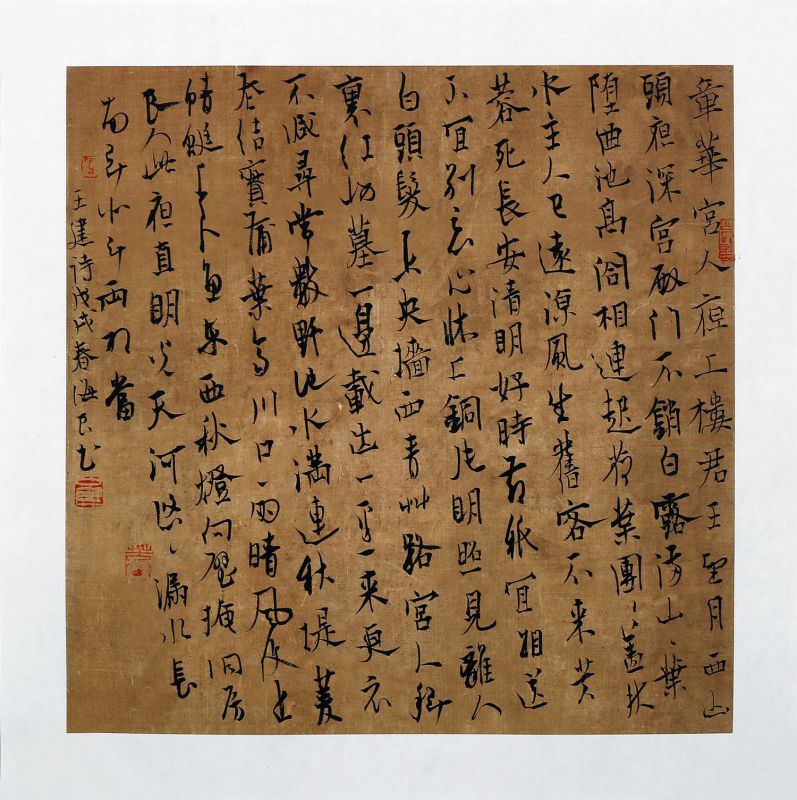 章華宮人夜上樓君王望月西山
頭夜深宮殿門不鎖白露滿山山葉
墮西池高閣相連起荷葉團團蓋秋
水主人已遠涼風生舊客不來芙
蓉死長安清明好時節祇宜相送
不宜別惡心牀上銅片明照見離人
白頭髮未央墻西青艸路宮人斜
裏紅妝墓一邊載出一邊來更衣
不減尋常數野池水滿連秋堤菱
花結實蒲葉齊川口雨晴風復止
蜻蜓上下魚東西秋燈向壁掩洞房
良人此夜直明光天河悠悠漏水長
南斗北斗兩相當
王建詩戊戌春海良書